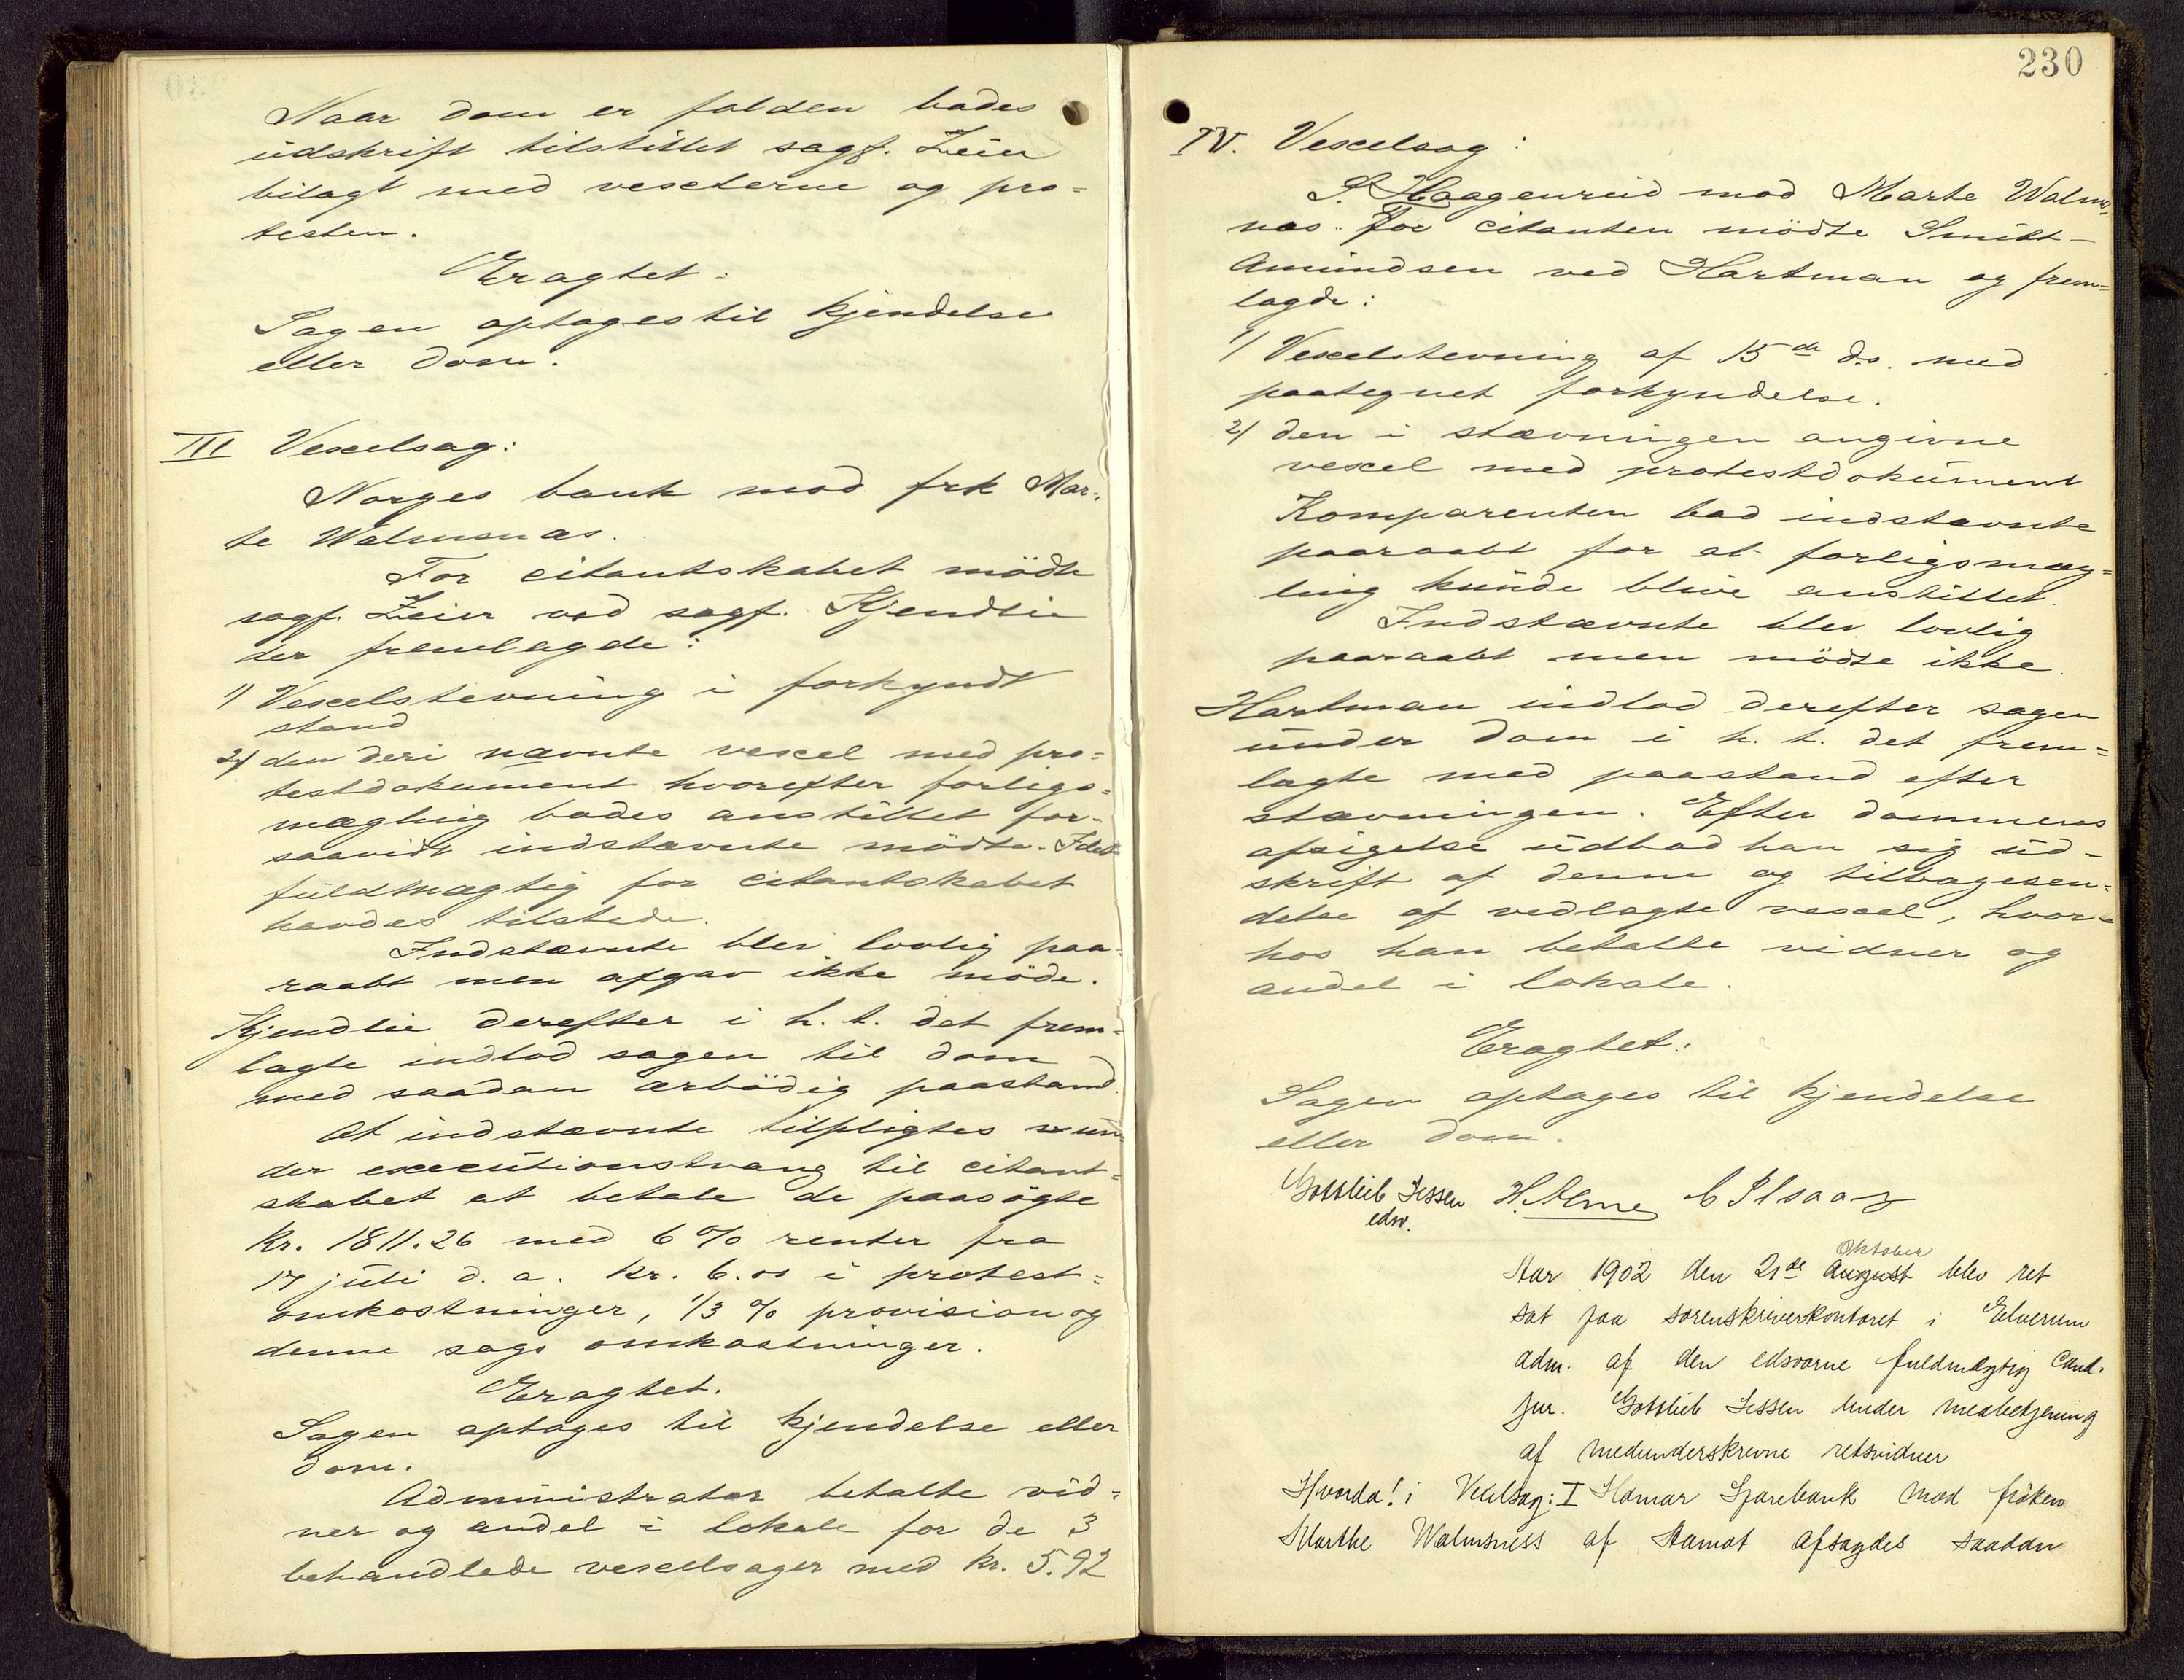 Naar dom er falden bades
udskrift tilstillet sagf. Zeier
bilagt med vexlerne og pro=
testen.
Eragtet:
Sagen optages til kjendelse
eller dom.
III Vexelsag:
Norges bank mod frk Mar=
te Walmsnæs.
For citantskabet mödte
sagf. Zeier ved sagf. Kjendlie
der fremlagde:
1) Vexelstevning i forkyndt
stand
2) den deri nævnte vexel med pro=
testdokument hvorefter forligs=
mægling bades anstillet for=
saavidt indstævnte mödte. Idet
fuldmægtig for citantskabet
havdes tilstede.
Indstævnte blev lovlig paa=
raabt men afgav ikke möde.
Kjendlie derefter i h. t. det frem=
lagte indlod sagen til dom
med saadan ærbödig paastand.
At indstævnte tilpligtes un
der executionstvang til citant=
skabet at betale de paasögte
Kr. 1811.26 med 6 % renter fra
17 juli d. a. Kr. 6.00 i protest=
omkostninger, 1/3 % provision og
denne sags omkostninger.
Eragtet.
Sagen optages til kjendelse eller
dom.
Administrator betalte vid=
ner og andel i lokale for de 3
behandlede vexelsager med kr. 5.92
230
IV. Vexelsag:
S. Haagenrud mod Marte Walms=
næs. For citanten mödte Smitt-
Amundsen ved Hartman og frem=
lagde:
1/ Vexelstevning af 15de ds. med
paategnet forkyndelse.
2/ den i stævningen angivne
vexel med protestdokument
Komparenten bad indstævnte
paaraabt for at forligsmæg=
ling kunde blive anstillet.
Indstævnte blev lovlig
paaraabt men mödte ikke.
Hartman indlod derefter sagen
under dom i h. t. det frem=
lagte med paastand efter
stævningen. Efter dommens
afsigelse udbad han sig ud-
skrift af denne og tilbagesen=
delse af vedlagte vexel, hvor=
hos han betalte vidner og
andel i lokale.
Eragtet:
Sagen optages til kjendelse
eller dom.
Gottlieb Jessen H. Alme
edsv.
Oktober
Aar 1902 den 21de August blev ret
sat paa sorenskriverkontoret i Elverum
adm. af den edsvorne fuldmægtig Cand.
jur. Gottlieb Jessen under medbetjening
af medunderskrevne retsvidner
Hvorda! i Vexelsag: I Hamar Sparebank mod fröken
Marthe Walmsness af Aamot afsagdes saadan